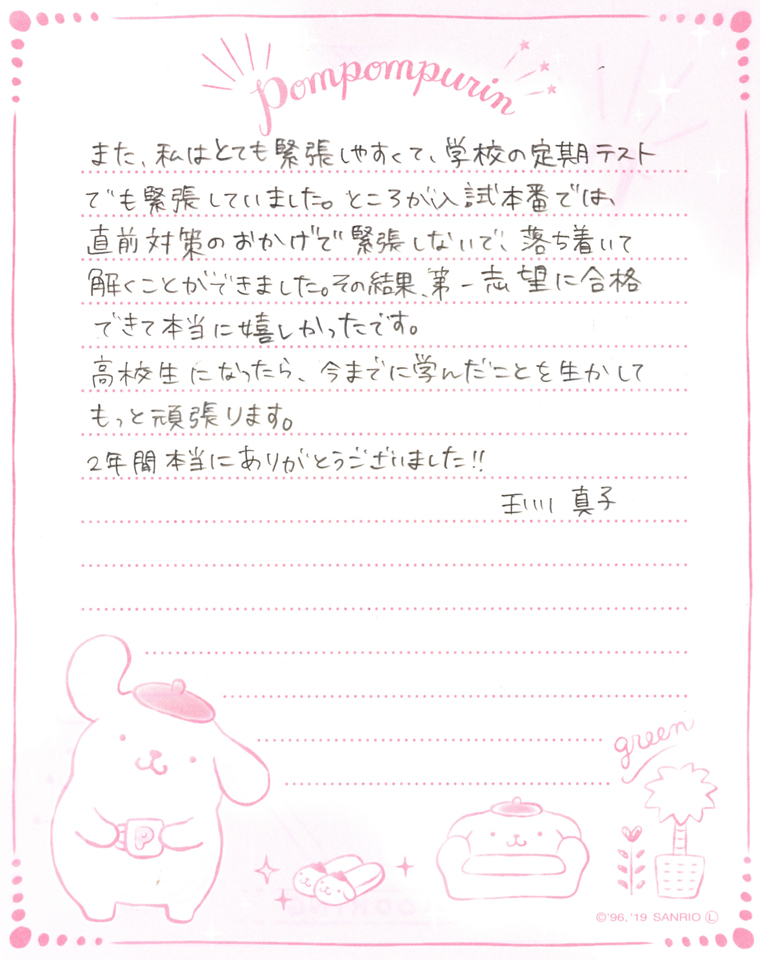 Pompompurin
また、私はとても緊張しやすくて、学校の定期テスト
でも緊張していました。ところが入試本番では、
直前対策のおかげで緊張しないで、落ち着いて
解くことができました。その結果、第一志望に合格
できて本当に嬉しかったです。
高校生になったら、今までに学んだことを生かして
もっと頑張ります。
2年間本当にありがとうございました!!
玉川 真子
green
P
©'96, '19 SANRIO Ⓛ